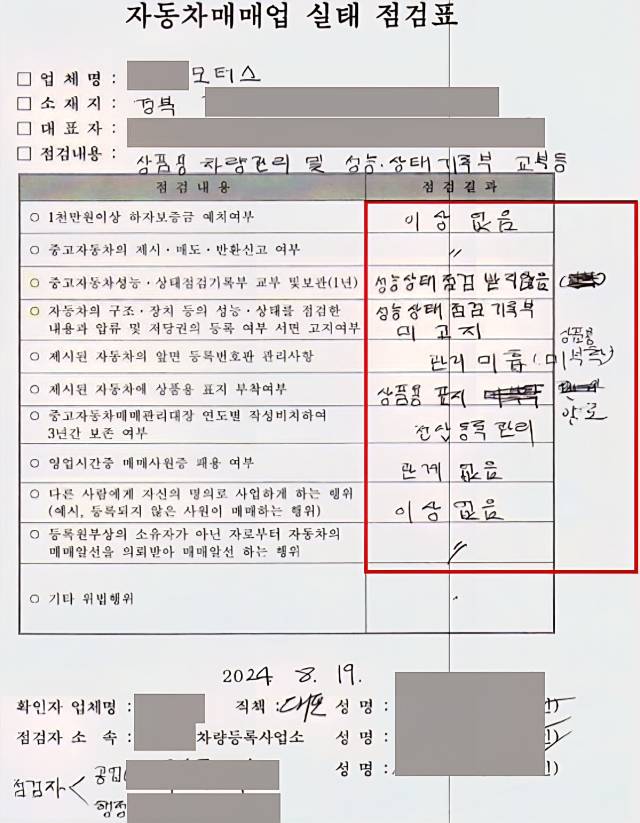 자동차매매업 실태 점검표
□ 업 체 명 : 모터스
□ 소 재 지 : 경북
□ 대 표 자 :
□ 점검내용 : 상품용 차량관리 및 성능·상태기록부 교부등
점 검 내 용 점 검 결 과
○ 1천만원이상 하자보증금 예치여부 이 상 없 음
○ 중고자동차의 제시·매도·반환신고 여부 〃
○ 중고자동차성능·상태점검기록부 교부 및보관(1년) 성능상태 점검 받지않음
○ 자동차의 구조·장치 등의 성능·상태를 점검한 성능상태 점검 기록부
내용과 압류 및 저당권의 등록 여부 서면 고지여부 미 고 지
○ 제시된 자동차의 앞면 등록번호판 관리사항 관리 미흡
상품용
○ 제시된 자동차에 상품용 표지 부착여부 상품용 표지
○ 중고자동차매매관리대장 연도별 작성비치하여
3년간 보존 여부 전산 등록 관리
○ 영업시간중 매매사원증 패용 여부 관계 없음
○ 다른 사람에게 자신의 명의로 사업하게 하는 행위
(예시, 등록되지 않은 사원이 매매하는 행위) 이 상 없 음
○ 등록원부상의 소유자가 아닌 자로부터 자동차의
매매알선을 의뢰받아 매매알선 하는 행위 〃
○ 기타 위법행위
2024 8. 19.
확인자 업체명 : 직책 : 대표 성 명 :
점검자 소 속 : 차량등록사업소 성 명 :
점검자 공업 성 명 :
행정